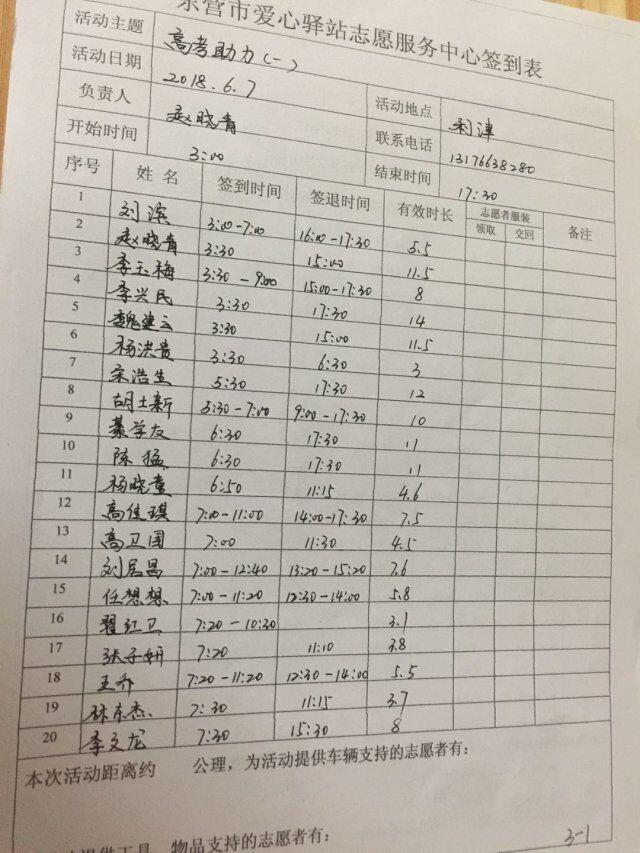 东营市爱心驿站志愿服务中心签到表
活动主题 高考助力(一)
活动日期 2018.6.7 活动地点 利津
负责人 赵晓青 联系电话 13176638280
开始时间 3:00 结束时间 17:30
序号 姓名 签到时间 签退时间 有效时长 志愿者服装 备注
领取 交回
1 刘滨 3:00-7:00 16:00-17:30 5.5
2 赵晓青 3:30 15:00 11.5
3 李玉梅 3:30-9:00 15:00-17:30 8
4 李兴民 3:30 17:30 14
5 魏建云 3:30 15:00 11.5
6 杨洪贵 3:30 6:30 3
7 宋浩生 5:30 17:30 12
8 胡士新 5:30-7:00 9:00-17:30 10
9 綦学友 6:30 17:30 11
10 陈猛 6:30 17:30 11
11 杨晓童 6:50 11:15 4.6
12 高佳琪 7:00-11:00 14:00-17:30 7.5
13 高卫国 7:00 11:30 4.5
14 刘居昌 7:00-12:40 13:20-15:20 7.6
15 任想想 7:00-11:20 12:30-14:00 5.8
16 翟红卫 7:20-10:30 3.1
17 张子妍 7:20 11:10 3.8
18 王乔 7:20-11:20 12:30-14:00 5.5
19 林东杰 7:30 11:15 3.7
20 李文龙 7:30 15:30 8
本次活动距离约 公理，为活动提供车辆支持的志愿者有：
提供工具、物品支持的志愿者有：
3-1